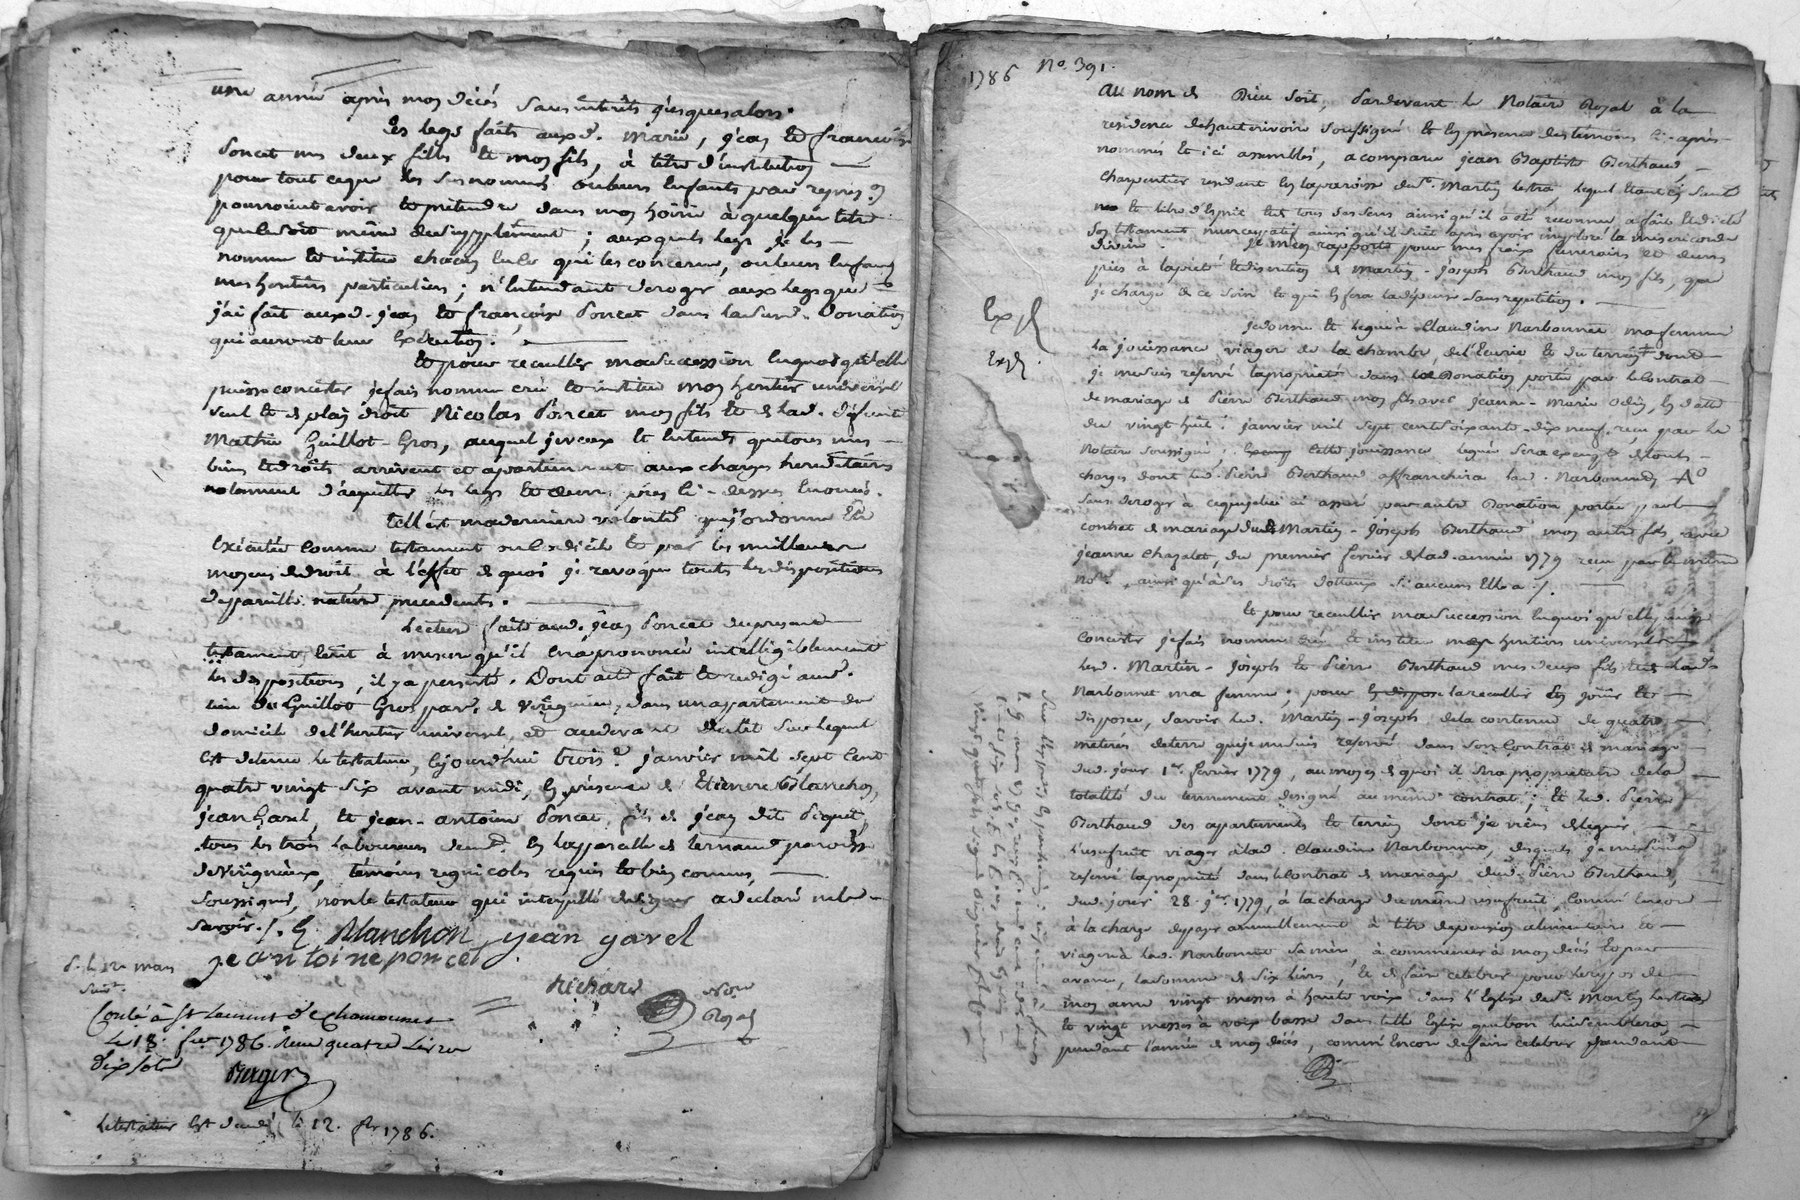 une année après mon décés sans intérêts jusques alors.
Les legs faits auxd. Marie, jean et françoise
Poncet mes deux filles et mon fils, à titre d'institution
pour tout ceque les susnommés ou leurs enfants
pourroient avoir et prétendre dans mon hoirie à quelque titre
que ce soit même de supplement ; auxquels legs je les
nomme et institue chacun en ce qui les concerne, ou leurs enfans
mes heritiers particuliers ; n'entendant deroger aux legs que
j'ai fait auxd. jean et françoise Poncet dans lasusd. Donation
qui auront leur exécution.
Et pour recueillir ma succession en quoi qu'elle
puisse concister je fais nomme crée et institue mon heritier universel
seul et de plein droit Nicolas Poncet mon fils et de lad. défunte
Mathie Guillot-Gros, auquel je veux et entends que tous mes
biens et droits arrivent et apartiennent aux charges hereditaires
notamment d'acquitter les legs et œuvres pies ci-dessus énoncés.
telle est ma derniere volonté que j'ordonne être
exécutée comme testament ou codicile et par les meilleurs
moyens de droit, à l'effet de quoi je revoque toutes les dispositions
de pareille nature précédentes.
Lecture faite aud. jean Poncet du present
testament écrit à mesure qu'il en a prononcé intelligiblement
les dispositions, il y a persisté. Dont acte fait et redigé aud.
lieu de Guillot Gros par. de Viregneux, dans un appartement du
domicile de l'heritier universel, et audevant du lit sur lequel
est detenu le testateur, cejourd'hui trois.e janvier mil sept cent
quatre vingt six avant midi, en présence de Etienne Blanchon,
jean Garel, et jean-antoine Poncet, fils de jean dit Piquet,
tous les trois laboureurs demt. en paroisse
de Virigneux, témoins regnicoles requis et bien connus,
soussignés, non le testateur qui interpellé de signer a declaré ne le
savoir. /. E. Blanchon jean garel
jeantoine poncet
Richard Nore Royal
Conlé à St Laurent de Chamousset
Le 18. fer 1786. Reçu quatre Livres
dix sols
Berger
Le testateur est décédé le 12. fer 1786.
1786 No. 391.
Au nom de Dieu soit, Pardevant le Notaire Royal à la
residence de hauterivoire soussigné et en présence des témoins ci-après
nommés et ici assemblés, a comparu jean Baptiste Berthaud,
charpentier residant en la paroisse de St. Martin lestra, lequel étant en santé
et libre d'esprit et tous ses sens ainsi qu'il a été reconnu, a fait et dicté
son testament nuncupatif ainsi qu'il suit après avoir imploré la misericorde
divine. je m'en rapporte pour mes fraix funeraires et œuvres
pies à la pieté et discretion de Martin-joseph Berthaud mon fils, que
je charge de ce soin et qui en fera la dépense sans repetition.
Exp.
Exp.
je donne et legue à Claudine Narbonnet ma femme
la jouissance viagere de la chambre, de l'écurie et du terrein dont
je me suis reservé la proprieté dans la Donation portée par le contrat
de mariage de Pierre Berthaud mon fils avec jeanne-Marie Odin, en datte
du vingt huit.e janvier mil sept cent soixante-dix neuf reçu par le
Notaire soussigné : cette jouissance leguée sera exempte de touts
charges dont led. Pierre Berthaud affranchira lad. Narbonnet, Ao
sans deroger à ce que je lui ai assuré par autre Donation portée par le
contrat de mariage dud. Martin-joseph Berthaud mon autre fils, avec
jeanne Chazalet, du premier fevrier de lad. année 1779 reçu par le même
Nore., ainsi qu'à ses droits dotaux si aucuns elle a /.
Et pour recueillir ma succession en quoi qu'elle puisse
concister je fais nomme crée et institue mes heritiers universels
led. Martin-joseph et Pierre Berthaud mes deux fils et de lad.
Narbonnet ma femme, pour la recueillir en jouir et
disposer, savoir led. Martin-joseph de la contenue de quatre
metrées de terre que je me suis reservé dans son contrat de mariage
dud. jour 1er. fevrier 1779, au moyen de quoi il sera proprietaire de la
totalité du tennement designé au même contrat ; et led. Pierre
Berthaud des appartements et terrein dont je viens de leguer
l'usufruit viager à lad. Claudine Narbonnet, desquels je me suis
reservé la proprieté dans le contrat de mariage dud. Pierre Berthaud,
dud. jour 28. jer. 1779, à la charge du même usufruit, comme encore
à la charge de payer annuellement à titre de pension alimentaire et
viagere à lad. Narbonnet sa mère, à commencer à mon décés et par
avance, la somme de six livres, et de faire celebrer pour le repos de
mon ame vingt messes à haute voix dans l'Eglise de St. Martin lestra
et vingt messes à voix basse dans telle Eglise que bon lui semblera,
pendant l'année de mon décés, comme encore de faire celebrer pendant